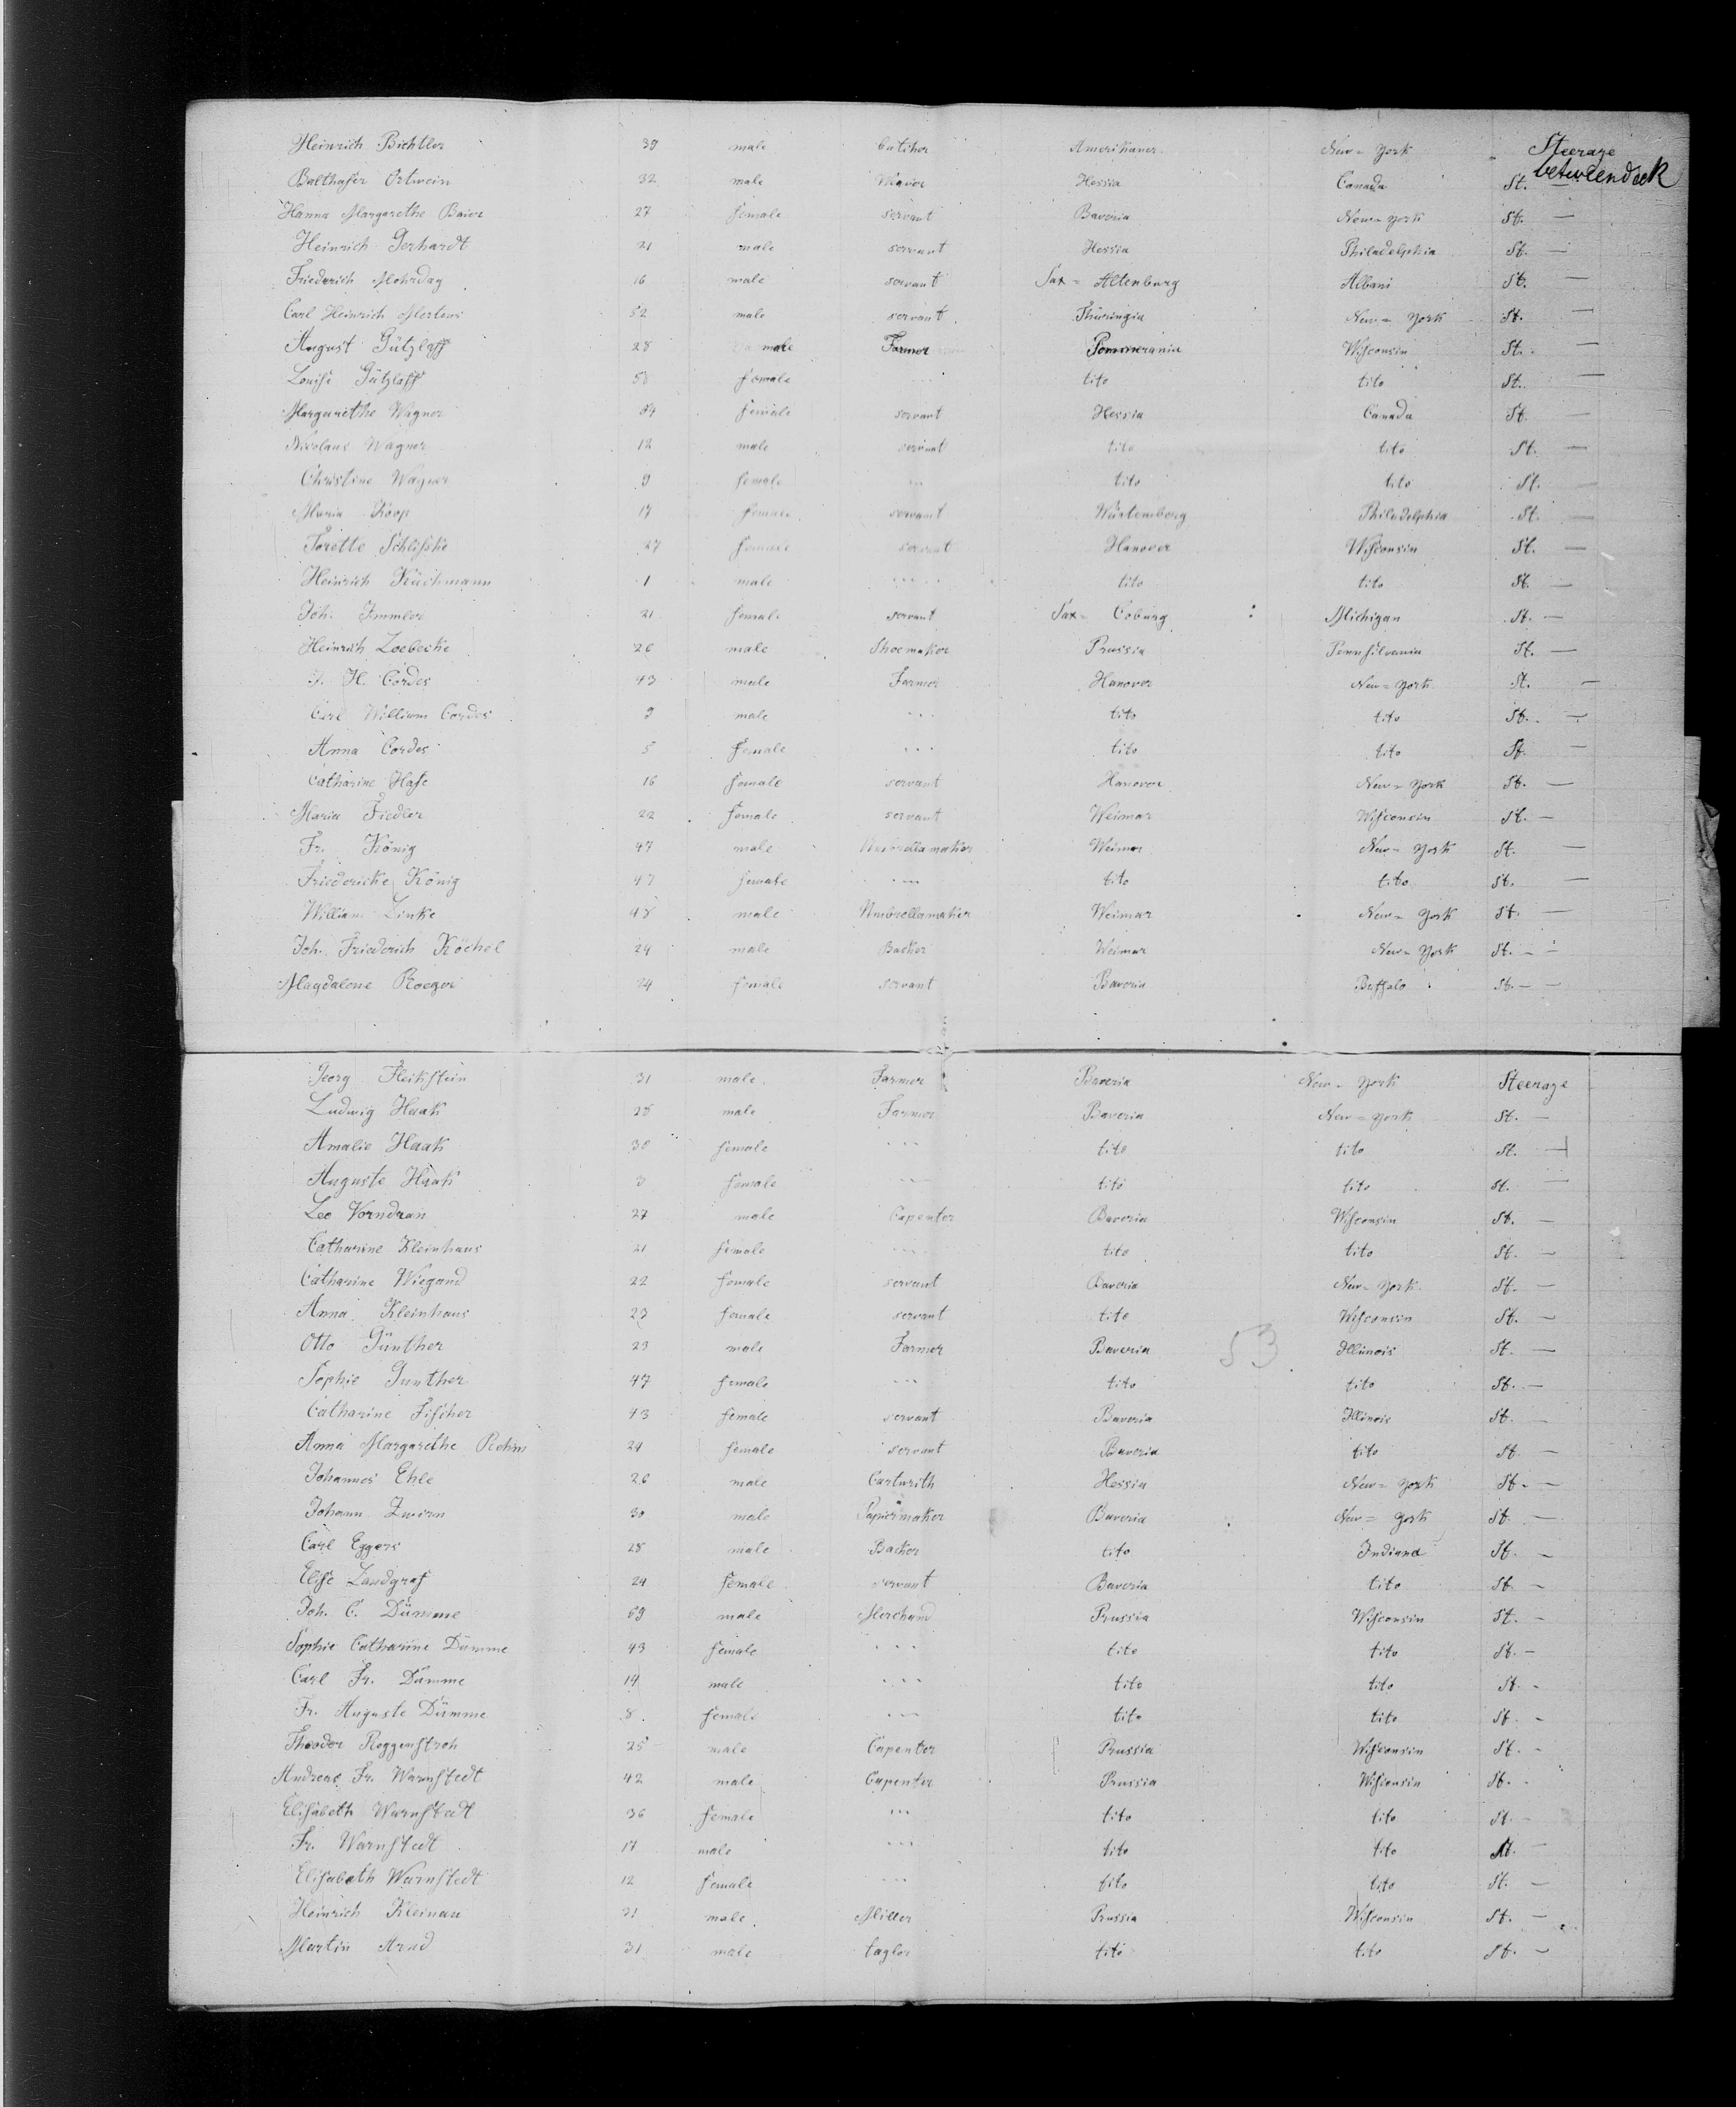 Heinrich Bichtler 39 male butcher Amerikaner New-York Steerage betweendeck
Balthaser Ortwein 32 male Maior Hessia Canada St. —
Hanna Margarethe Baier 27 female servant Bavoria New-York St. —
Heinrich Gerhardt 21 male servant Hessia Philadelphia St. —
Friederich Mohrdag 16 male servant Sax = Altenburg Albani St. —
Carl Heinrich Mertens 52 male servant Thüringia New-York St. —
August Gützlaff 28 male Farmer Pommerania Wisconsin St. —
Louise Gützlaff 58 female ... tito tito St. —
Margarethe Wagner female servant Hessia Canada St. —
Nicolaus Wagner 12 male servant tito tito St. —
Christine Wagner 9 female ... tito tito St. —
Maria Koop 17 female servant Würtemberg Philadelphia St. —
Schliske 27 female servant Hanover Wisconsin St. —
Heinrich Küchmann 1 male ..... tito tito St. —
Joh. Immler 21 female servant Sax = Coburg Michigan St. —
Heinrich Loebecke 26 male Shoemaker Prussia Pennsilvania St. —
H. Cordes 43 male Farmer Hanover New-York St. —
Carl William Cordes 9 male ... tito tito St. —
Anna Cordes 5 female ... tito tito St. —
Catharine Hase 16 female servant Hanover New-York St. —
Maria Fiedler 22 female servant Weimar Wisconsin St. —
Fr. König 47 male Umbrellamaker Weimar New-York St. —
Friedericke König 47 female .... tito tito St. —
William Zinke 48 male Umbrellamaker Weimar New-York St. —
Joh. Friederich Köchel 24 male Backer Weimar New-York St. —
Magdalene Roeger 24 female servant Bavoria Buffalo St. —
Georg Fleikstein 31 male Farmer Bavoria New-York Steerage
Ludwig Haak 28 male Farmer Bavoria New-York St. —
Amalie Haak 30 female ... tito tito St. —
Auguste Haak 3 female ... tito tito St. —
Leo Vorndran 27 male Capenter Bavoria Wisconsin St. —
Catharine Kleinhaus 21 female .... tito tito St. —
Catharine Wiegand 22 female servant Bavoria New-York St. —
Anna Kleinhaus 23 female servant tito Wisconsin St. —
Otto Günther 23 male Farmer Bavoria 53 Illinois St. —
Sophie Gunther 47 female ... tito tito St. —
Catharine Fischer 43 female servant Bavoria Illinois St. —
Anna Margarethe Rehm 24 female servant Bavoria tito St. —
Johannes Ehle 26 male Cartwrith Hessia New-York St. —
Johann Zwirn 30 male Papiermaker Bavoria New-York St. —
Carl Eggers 28 male Backer tito Indiana St. —
Elise Landgraf 24 female servant Bavoria tito St. —
Joh. C. Dümme 69 male Merchand Prussia Wisconsin St. —
Sophie Catharine Dümme 43 female ... tito tito St. —
Carl Fr. Dümme 14 male .... tito tito St. —
Fr. Auguste Dümme 8 female ... tito tito St. —
Theodor Roggenstroh 25 male Capenter Prussia Wisconsin St. —
Andreas Fr. Warnstedt 42 male Capenter Prussia Wisconsin St. —
Elisabeth Warnstedt 36 female ... tito tito St. —
Fr. Warnstedt 17 male ... tito tito St. —
Elisabeth Warnstedt 12 female ... tito tito St. —
Heinrich Kleinau 21 male Miller Prussia Wisconsin St. —
Martin Arnd 31 male taylor tito tito St. —